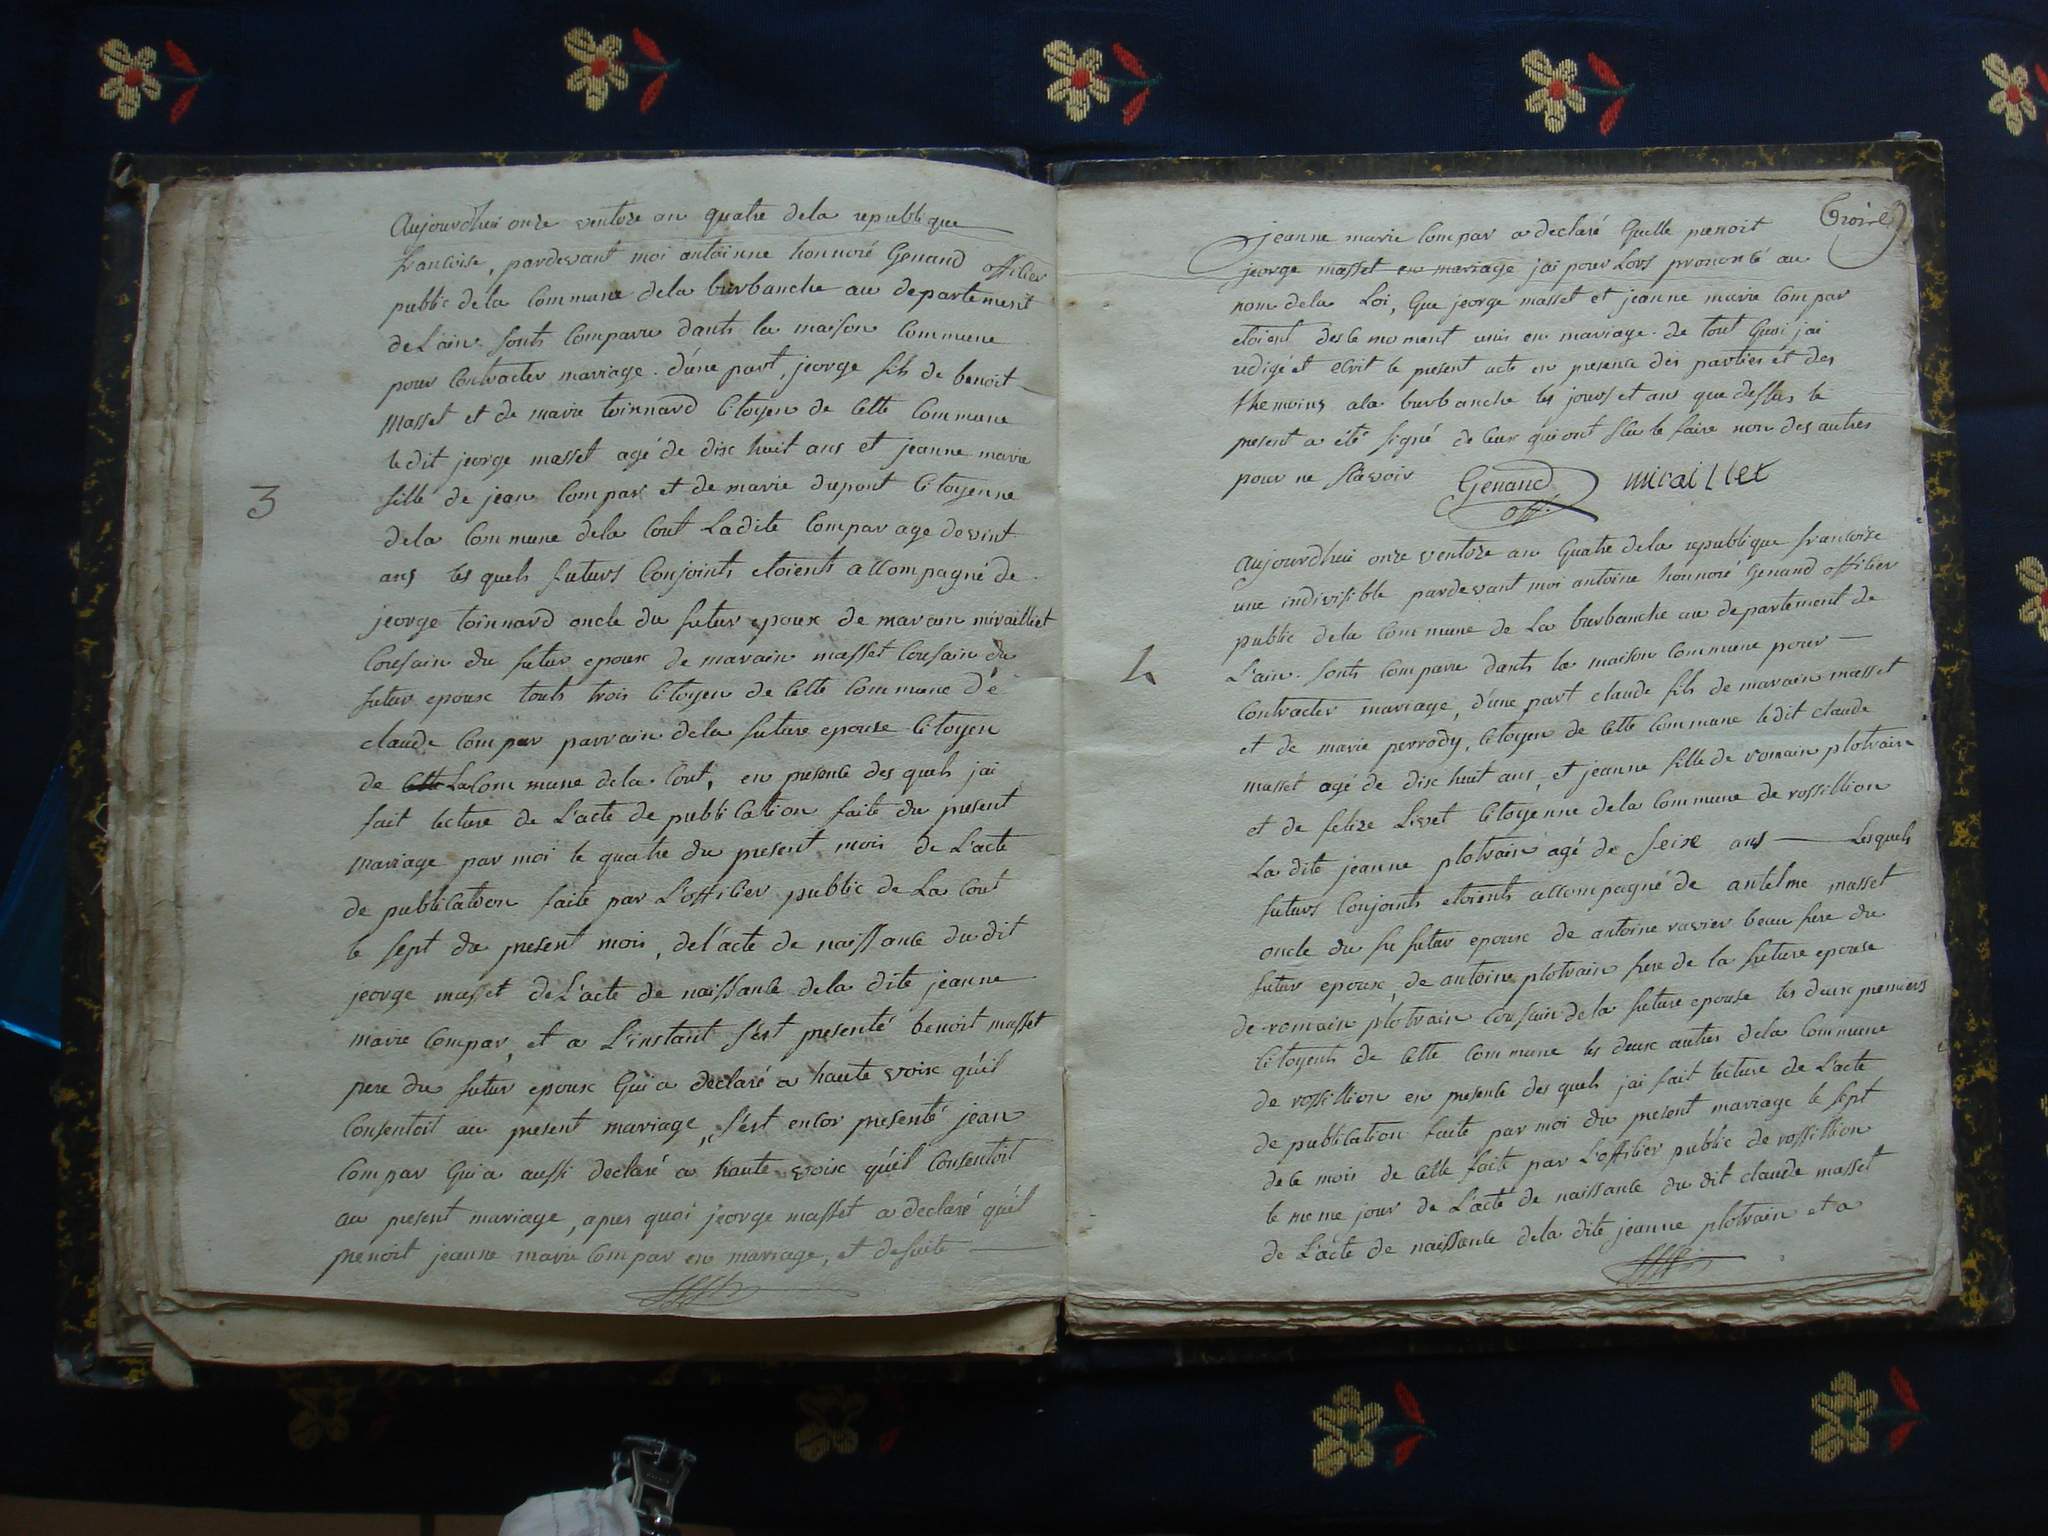 Aujourdhui onze ventose an quatre dela republique
francoise, pardevant moi antoinne honnoré Genand officier
public dela Commune dela burbanche au departement
de L'ain. sonts comparu dants la maison Commune
pour Contracter mariage. d'une part, jeorge fils de benoit
Masset et de marie toinnard Citoyen de Cette Commune
le dit jeorge masset agé de disc huit ans et jeanne marie
3
fille de jean Compar et de marie dupont Citoyenne
dela Commune dela Cout Ladite Compar age de vint
ans les quels futurs Conjoints etoients accompagné de
jeorge toinnard oncle du futur epoux de marain miraillet
Cousain du futur epoux de marain masset Cousain du
futur epoux touts trois Citoyen de Cette Commune d'e
claude Compar parrain dela future epouse Citoyen
de Cette La Commune dela Cout, en presence des quels jai
fait lecture de L'acte de publication faite du present
mariage par moi le quatre du present mois de L'acte
de publication faite par L'officier public de La Cout
le sept du present mois, del'acte de naissance du dit
jeorge masset de L'acte de naissance dela dite jeanne
marie Compar, et a L'instant s'est presenté benoit masset
pere du futur epoux Qui a declaré a haute voix qu'il
Consentoit au present mariage, s'est encor presenté jean
Compar Qui a aussi declaré a haute voix qu'il Consentoit
au present mariage, apres quoi jeorge masset a declaré qu'il
prenoit jeanne marie Compar en mariage, et desuite
Troise
jeanne marie Compar a declaré Quelle prenoit
jeorge masset en mariage jai pour Lors prononcé au
nom dela Loi, Que jeorge masset et jeanne marie Compar
etoient des ce moment unis en mariage. de tout Quoi jai
redigé et ecrit le present acte en presence des parties et des
themoins a la burbanche les jours et ans que dessus le
present a été signé de ceux qui ont sçu le faire non des autres
pour ne Scavoir Genand miraillet
off.
Aujourdhui onze ventose an Quatre dela republique francoise
une indivisible pardevant moi antoine honnoré Genand officier
public dela Commune de La burbanche au departement de
L'ain. sonts comparu dants la maison Commune pour
4
Contracter mariage, d'une part claude fils de marain masset
et de marie perrody, Citoyen de Cette Commune ledit claude
masset agé de disc huit ans, et jeanne fille de romain plotrain
et de felize Livet Citoyenne dela Commune de rossillion
La dite jeanne plotrain agé de seize ans Lesquels
futurs Conjoints etoients accompagné de antelme masset
oncle du fu futur epoux de antoine ravier beau frere du
futur epoux, de antoine plotrain frere de la future epouse
de romain plotrain Cousain dela future epouse les deux premiers
Citoyents de Cette Commune les deux autres dela Commune
de rossillion en presence des quels jai fait lecture de L'acte
de publication faite par moi du present mariage le sept
de ce mois de Celle faite par L'officier public de rossillion
le meme jour de L'acte de naissance du dit claude masset
de L'acte de naissance dela dite jeanne plotrain et a